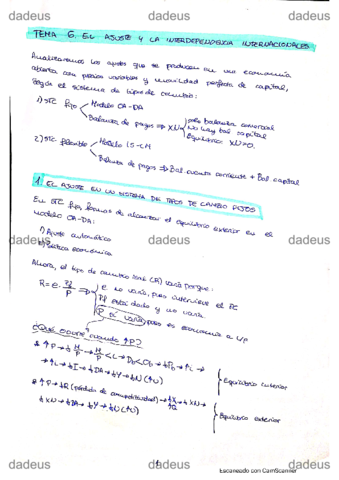 dadeus dadeus dadeus
TEMA 6. EL AJUSTE Y LA INTERDEPENDENCIA INTERNACIONALES
Analizaremos los ajustes que se producen en una economía
abierta con precios variables y movilidad perfecta de capital,
según el sistema de tipos de cambio:
1) STC fijo Modelo OA-DA
Balanza de pagos → XN solo balanza comercial
No hay bal capital
Equilibrio: XN=0.
2) STC flexible Modelo IS-LM
Balanza de pagos → Bal. cuenta corriente + Bal capital
1. EL AJUSTE EN UN SISTEMA DE TIPOS DE CAMBIO FIJOS
En STC fijos, formas de alcanzar el equilibrio exterior en el
modelo OA-DA:
1) Ajuste automático
dadeus dadeus dadeus
2) Política económica
Ahora, el tipo de cambio real (R) varía porque:
R = e · Pf / P → e no varía, pues interviene el BC
Pf está dado y no varía
P sí varía pues es economía a l/p
¿Qué ocurre cuando ↑P?
* ↑P → ↓ M/P → M/P < L → Db < Ob → ↓Pb → ↑i →
→ ↑i → ↓I → ↓DA → ↓Y → ↓N (↑U)
Equilibrio interior
* ↑P → ↓R (pérdida de competitividad) → ↓X ↑Q → ↓XN →
↓XN → ↓DA → ↓Y → ↓N (↑U)
Equilibrio exterior
dadeus dadeus dadeus
Escaneado con CamScanner